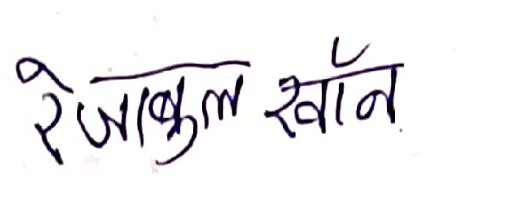 रेजाबुल खाॅन